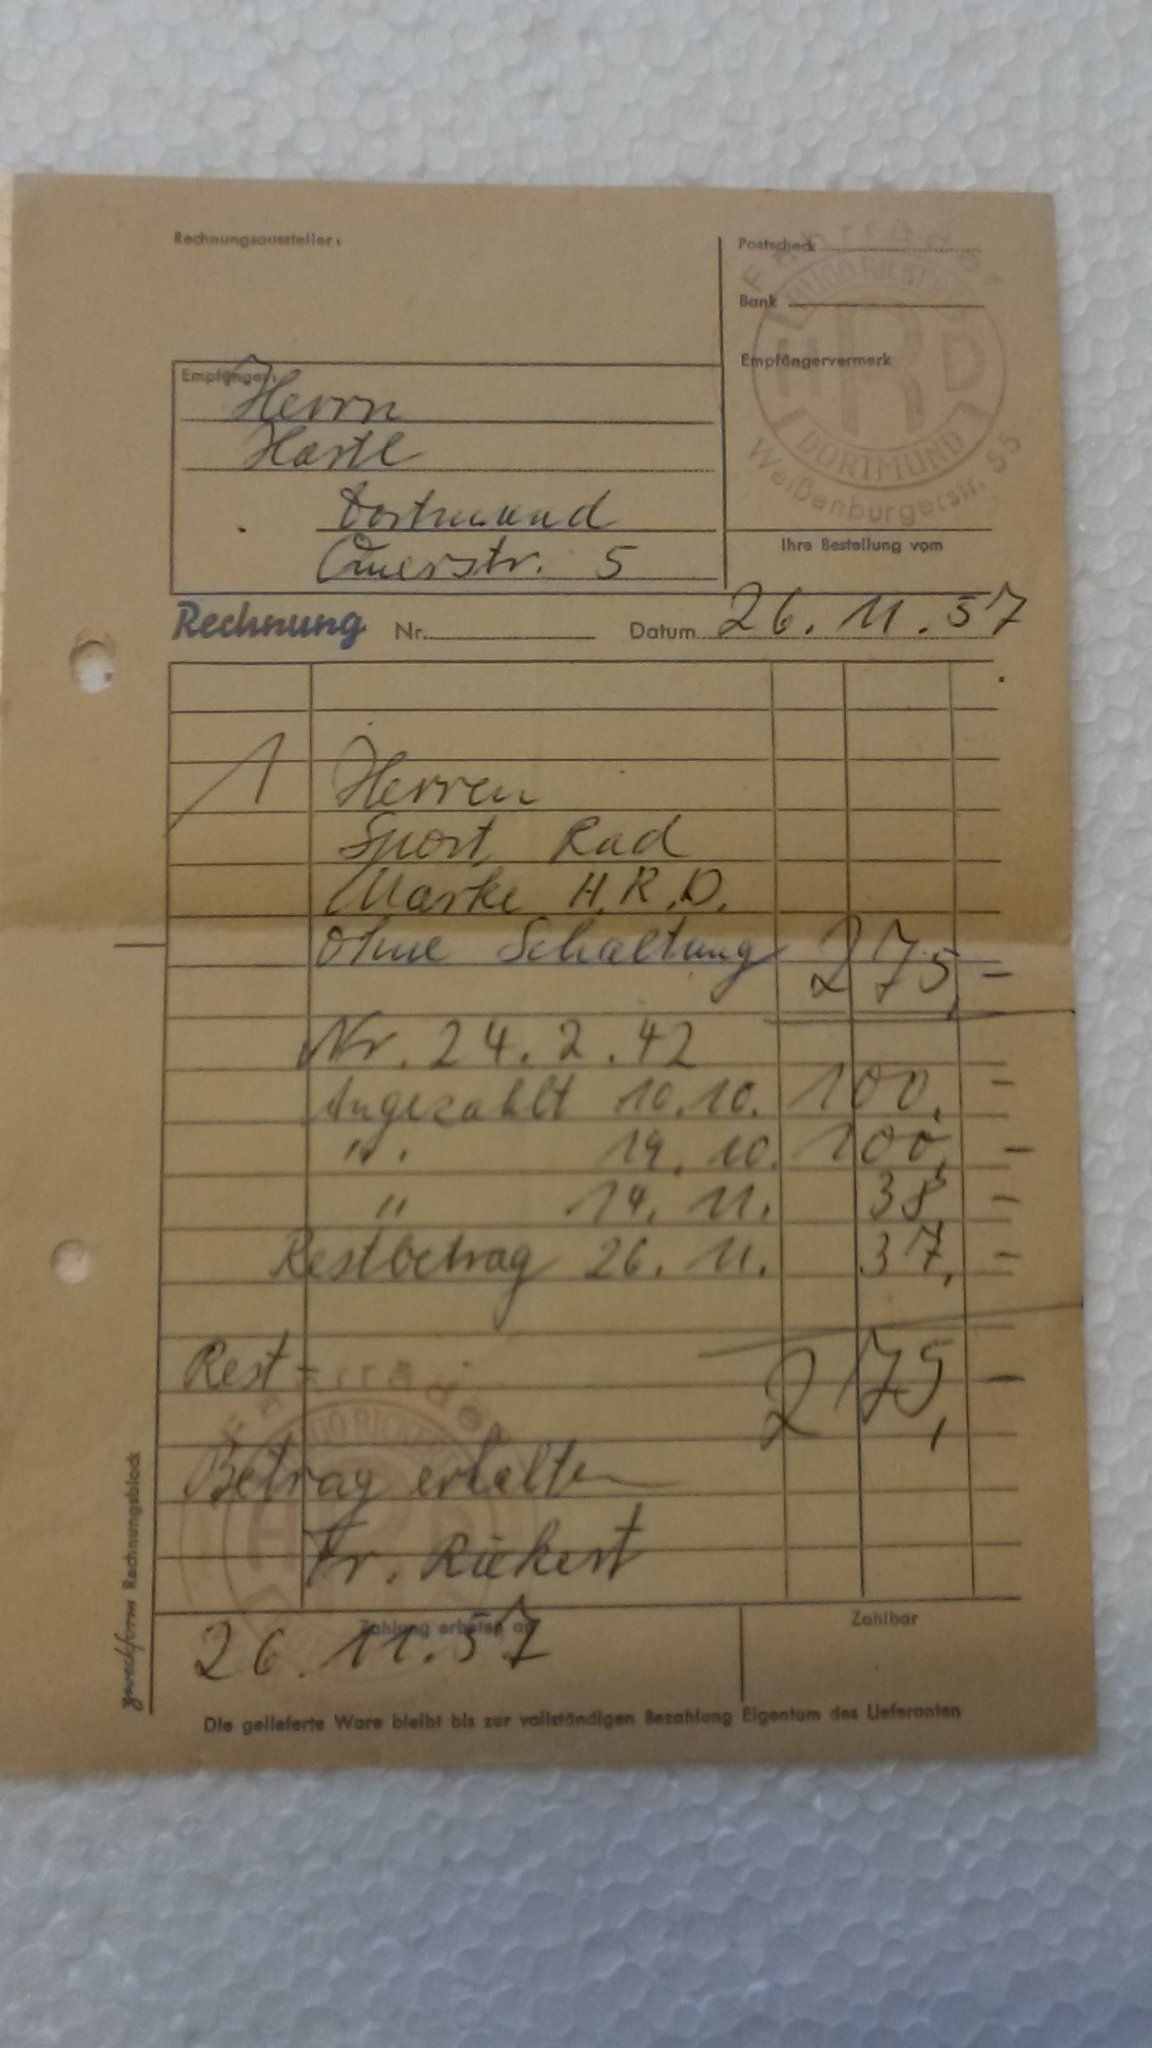 Rechnungsaussteller:
Postscheck
Bank
Empfängervermerk
Fahrräder
HUGO RICKERT
HRD
DORTMUND
Weißenburgerstr. 55
Ihre Bestellung vom
Empfänger:
Herrn
Hartl
Dortmund
Querstr. 5
Rechnung Nr. Datum 26.11.57
1 Herren
Sport Rad
Marke H.R.D.
Ohne Schaltung 275,-
Nr. 24.2.42
Angezahlt 10.10. 100,-
" 19.10. 100,-
" 14.11. 38,-
Restbetrag 26.11. 37,-
Rest- 275,-
Betrag erhalten
Fr. Rickert
26.11.57
Zahlung erbeten an
Zahlbar
Die gelieferte Ware bleibt bis zur vollständigen Bezahlung Eigentum des Lieferanten
zweckform Rechnungsblock